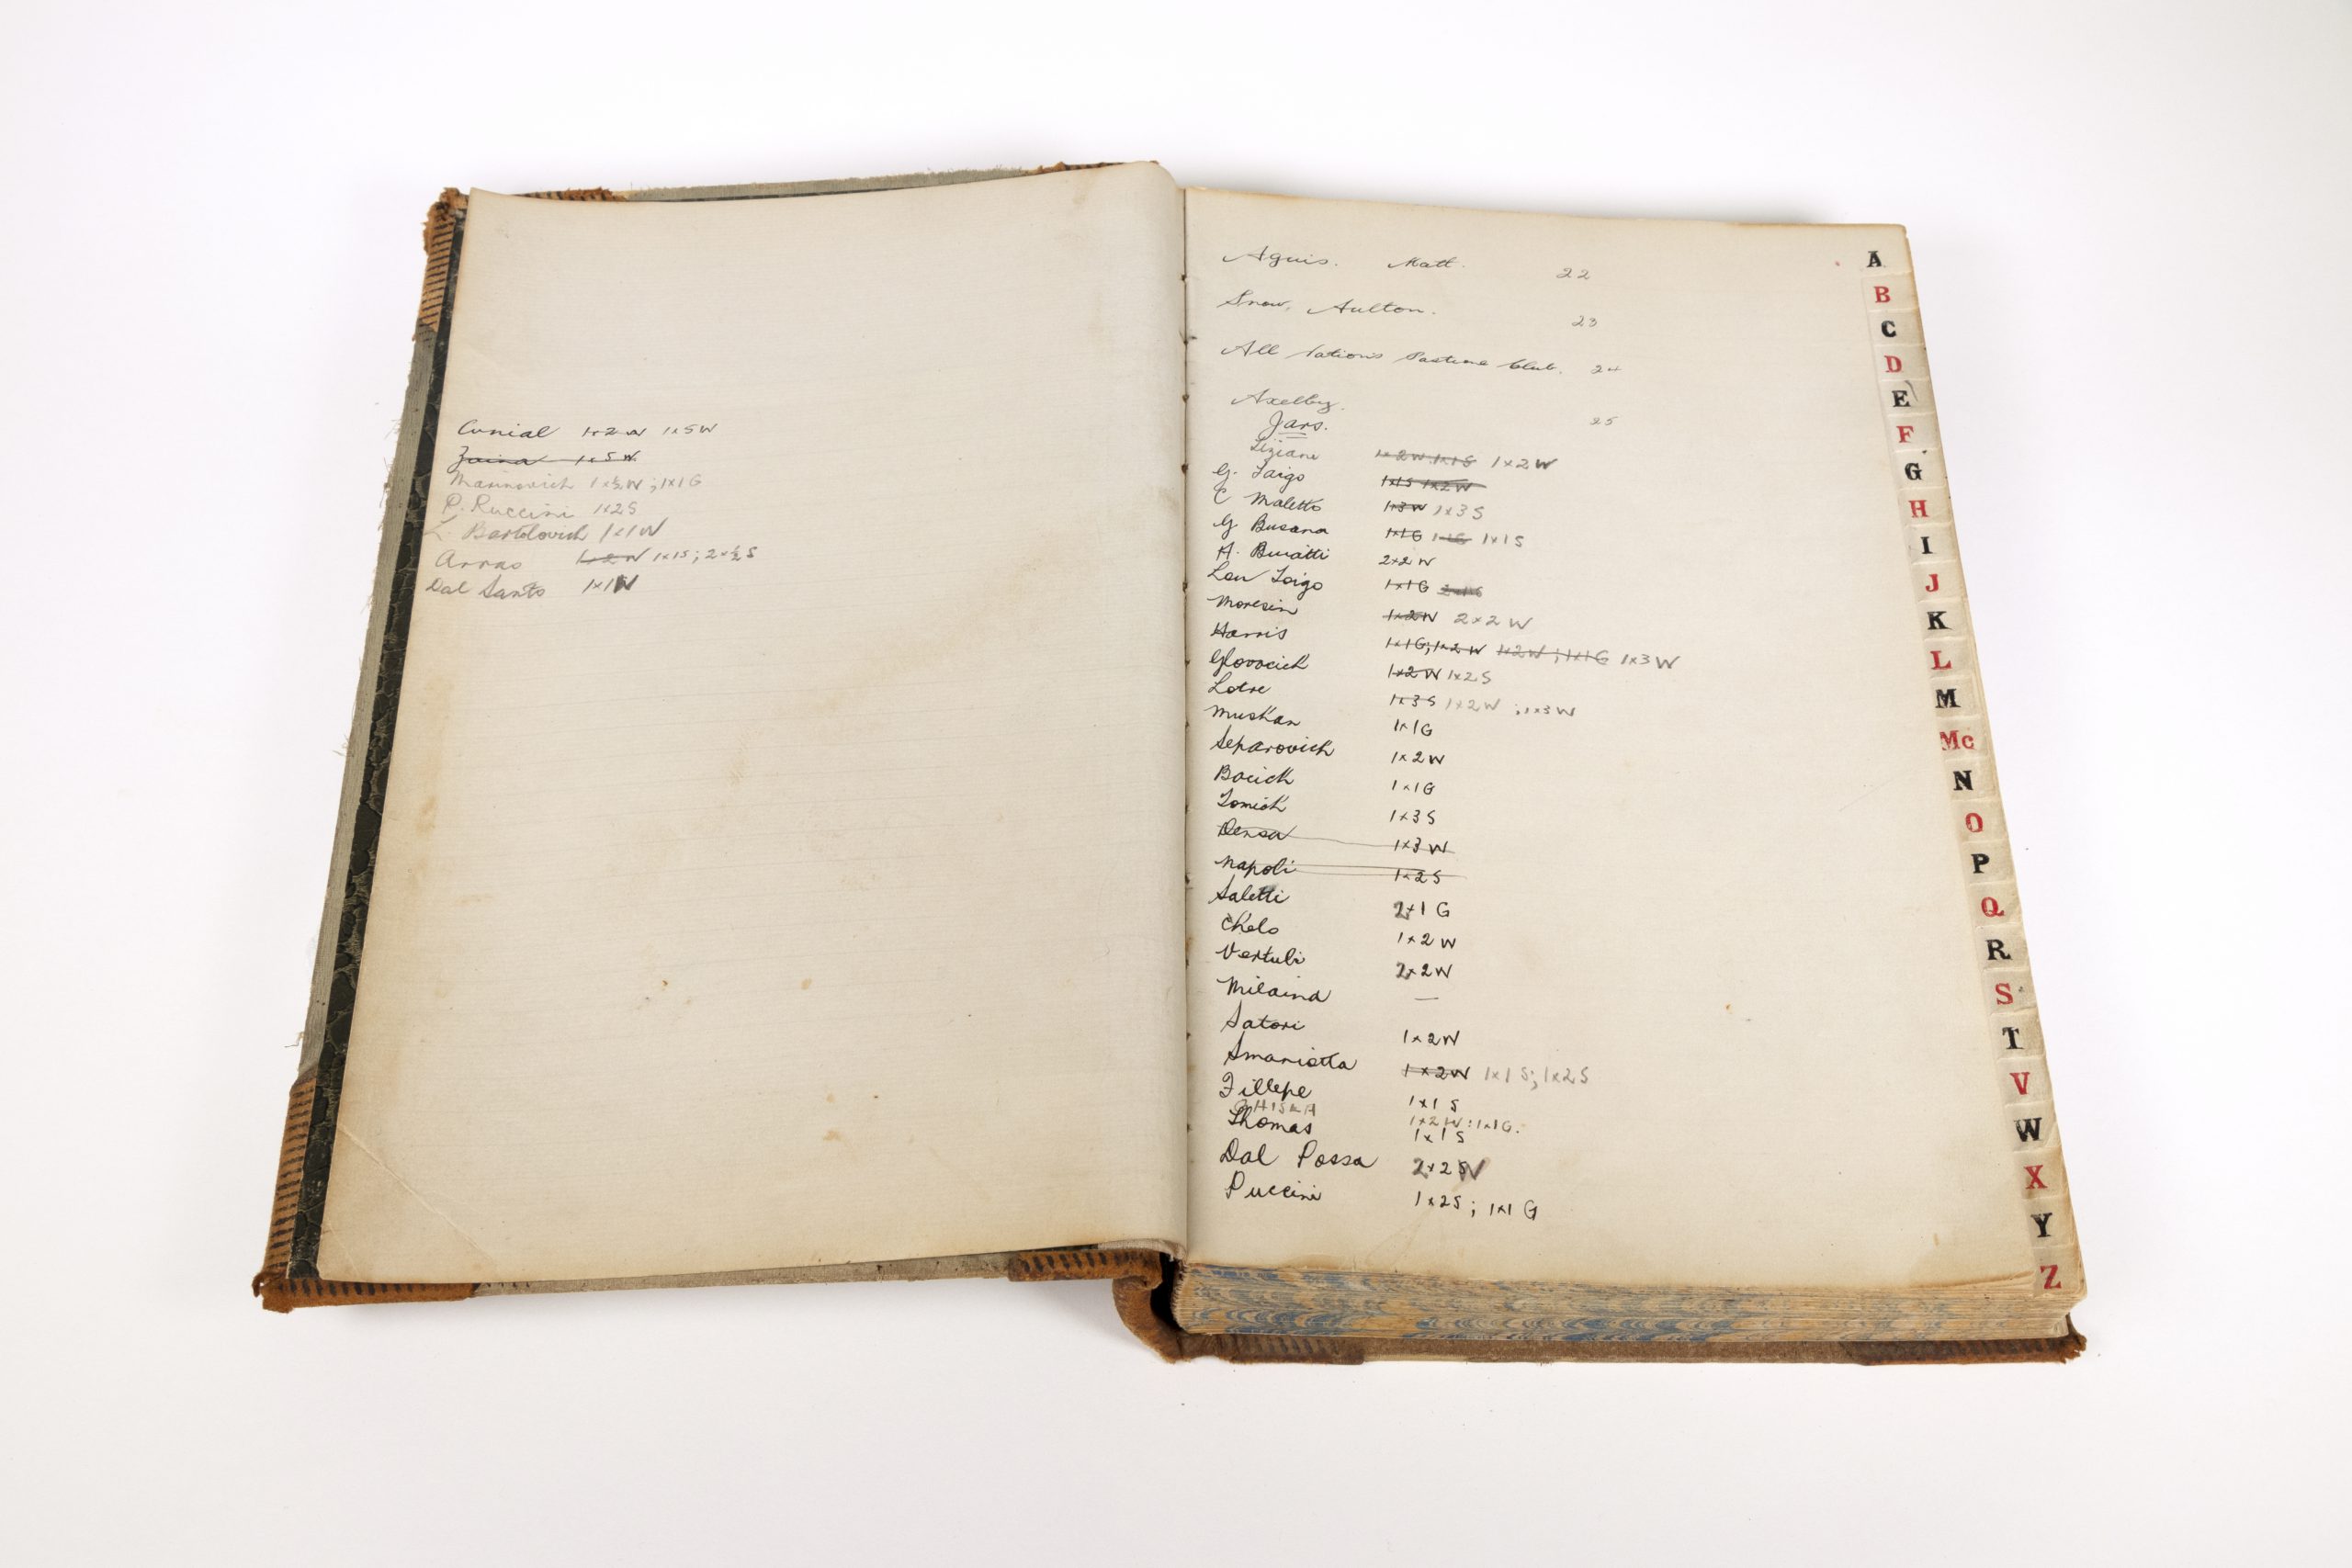 Cunial 1x2W 1x5W
Zaina 1x5W
Marinovich 1x½W; 1x1G
P. Ruccini 1x2S
L. Bartolovich 1x1W
Arras 1x2W 1x1S; 2x½S
Dal Santo 1x1W
Aguis. Matt. 22
Snow, Aulton. 23
All Nations Pastime Club. 24
Axelby. 25
Jars.
Tiziani 1x2W 1x1S 1x2W
G. Toigo 1x1S 1x2W
C Maletto 1x3W 1x3S
G Busana 1x1G 1x1G 1x1S
A. Buratti 2x2W
Len Toigo 1x1G
Moresin 1x2W 2x2W
Harris 1x1G; 1x2W 1x2W; 1x1G 1x3W
Glovocich 1x2W 1x2S
Lotre 1x3S 1x2W ; 1x3W
Muskan 1x1G
Separovich 1x2W
Bocich 1x1G
Tomich 1x3S
Densa 1x3W
Napoli 1x2S
Saletti 2x1G
Chelo 1x2W
Vertubi 2x2W
Milaina —
Satori 1x2W
Smaniotta 1x2W 1x1S; 1x2S
Fillepe 1x1S
1x2W: 1x1G.
Thomas 1x1S
Dal Possa 2x2W
Puccini 1x2S; 1x1G
A
B
C
D
E
F
G
H
I
J
K
L
M
Mc
N
O
P
Q
R
S
T
V
W
X
Y
Z